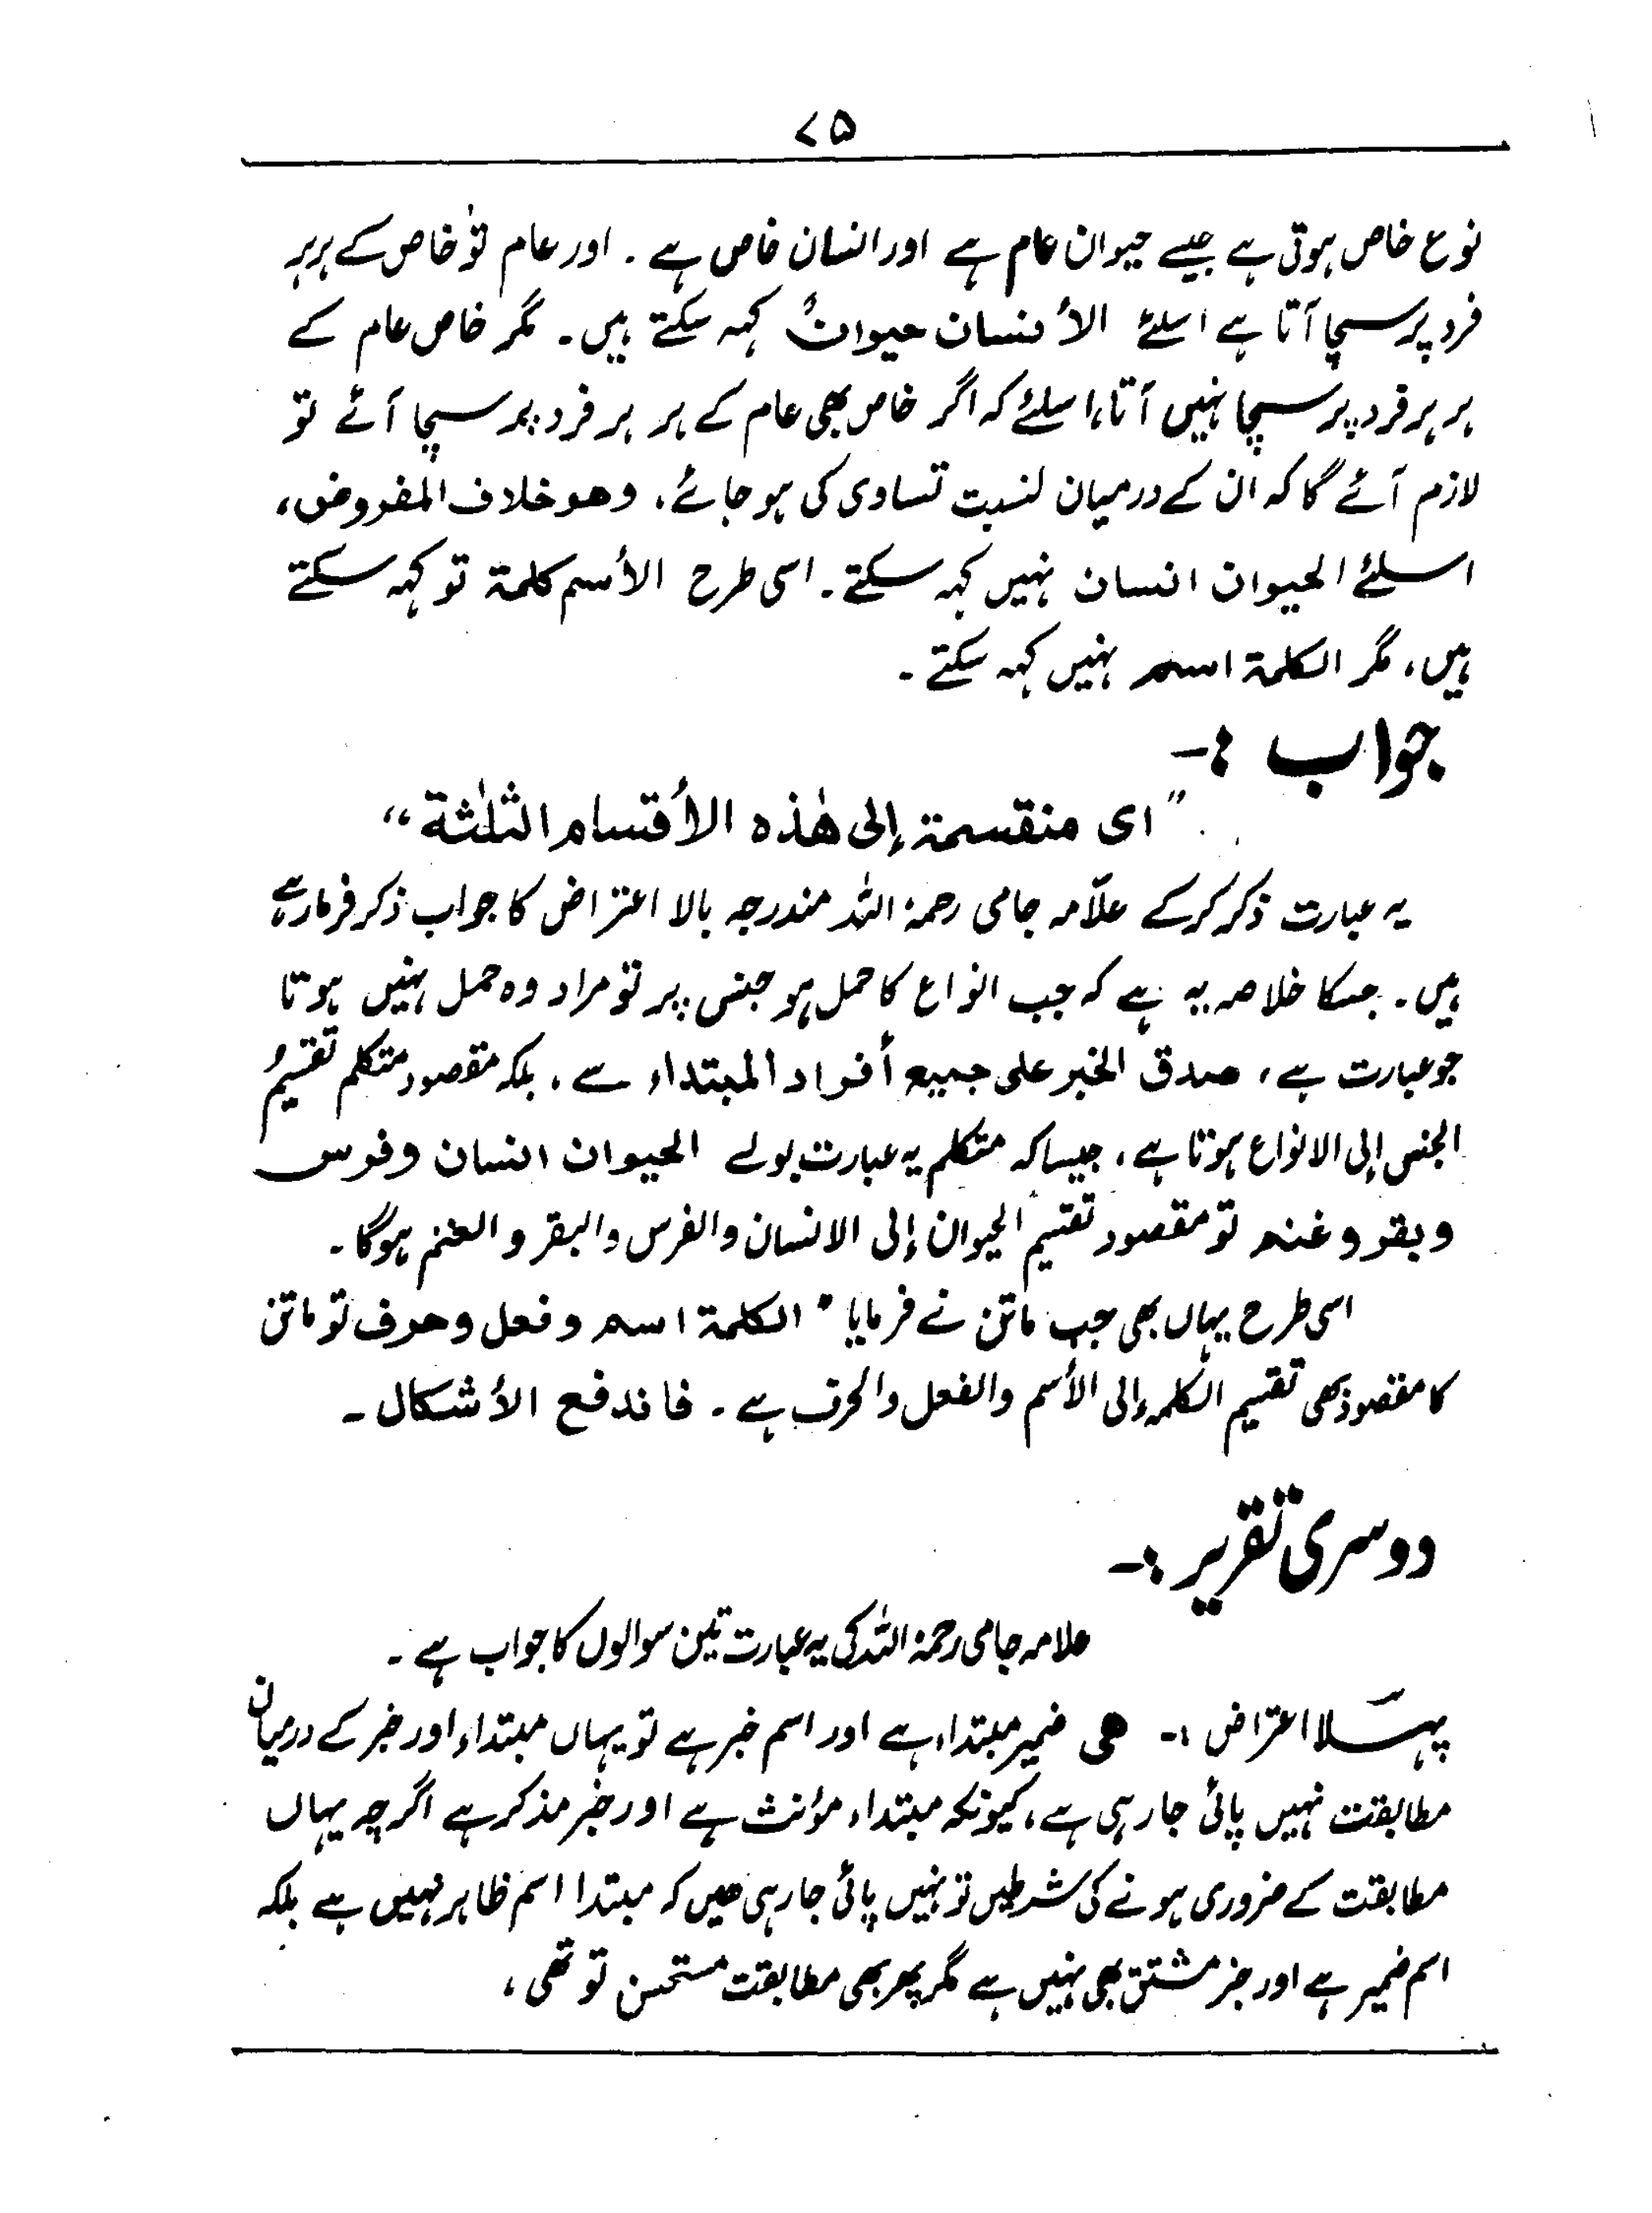 ۷۵
نوع خاص ہوتی ہے جیسے حیوان عام ہے اور انسان خاص ہے ۔ اور عام تو خاص کے ہر ہر
فرد پر سچا آتا ہے اسلئے الأنسان حیوانٌ کہہ سکتے ہیں ۔ مگر خاص عام کے
ہر ہر فرد پر سچا نہیں آتا، اسلئے کہ اگر خاص بھی عام کے ہر ہر فرد پر سچا آئے تو
لازم آئے گا کہ ان کے درمیان نسبت تساوی کی ہو جائے، وھو خلاف المفروض،
اسلئے الحیوان انسان نہیں کہہ سکتے ۔ اسی طرح الأسم کلمة تو کہہ سکتے
ہیں، مگر الکلمة اسم نہیں کہہ سکتے ۔
جواب :-
"ای منقسمة إلی ھٰذہ الأقسام الثلٰثة"
یہ عبارت ذکر کرکے علّامہ جامی رحمۃ اللہ مندرجہ بالا اعتراض کا جواب ذکر فرما رہے
ہیں ۔ جسکا خلاصہ یہ ہے کہ جب انواع کا حمل ہو جنس پر تو مراد وہ حمل نہیں ہوتا
جو عبارت ہے، صدق الخبر علی جمیع أفراد المبتداء سے، بلکہ مقصود متکلم تقسیمُ
الجنس إلی الانواع ہوتا ہے، جیسا کہ متکلم یہ عبارت بولے الحیوان انسان و فرس
و بقر و غنم تو مقصود تقسیم الحیوان إلی الانسان والفرس والبقر و الغنم ہوگا ۔
اسی طرح یہاں بھی جب ماتن نے فرمایا " الکلمة اسم و فعل و حرف تو ماتن
کا مقصود بھی تقسیم الکلمہ إلی الأسم والفعل والحرف ہے ۔ فاندفع الأشکال ۔
دوسری تقریر :-
علامہ جامی رحمۃ اللہ کی یہ عبارت تین سوالوں کا جواب ہے ۔
پہلا اعتراض :- ھی ضمیر مبتداء ہے اور اسم خبر ہے تو یہاں مبتداء اور خبر کے درمیان
مطابقت نہیں پائی جا رہی ہے، کیونکہ مبتداء مؤنث ہے اور خبر مذکر ہے اگرچہ یہاں
مطابقت کے ضروری ہونے کی شرطیں تو نہیں پائی جا رہی ھیں کہ مبتدا اسم ظاہر نہیں ہے بلکہ
اسم ضمیر ہے اور خبر مشتق بھی نہیں ہے مگر پھر بھی مطابقت مستحسن تو تھی،